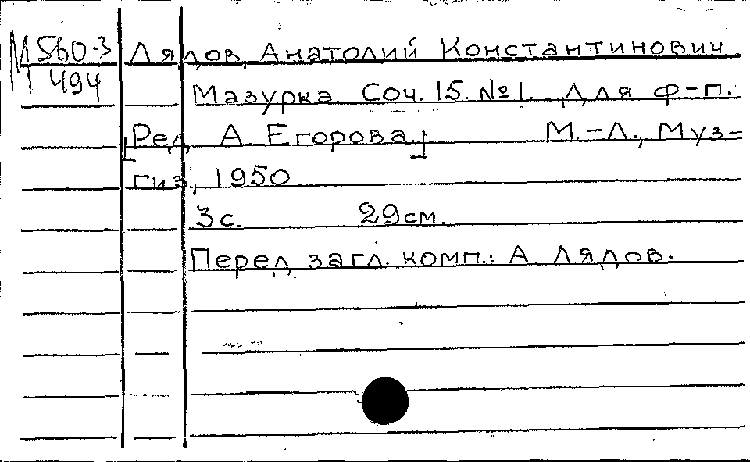 М 560-3
494
Лядов, Анатолий Константинович.
Мазурка Соч. 15. №1. Для ф-п.
[Ред. А. Егорова]. М.-Л., Муз-
гиз, 1950
3 с. 29 см.
Перед загл. комп.: А. Лядов.